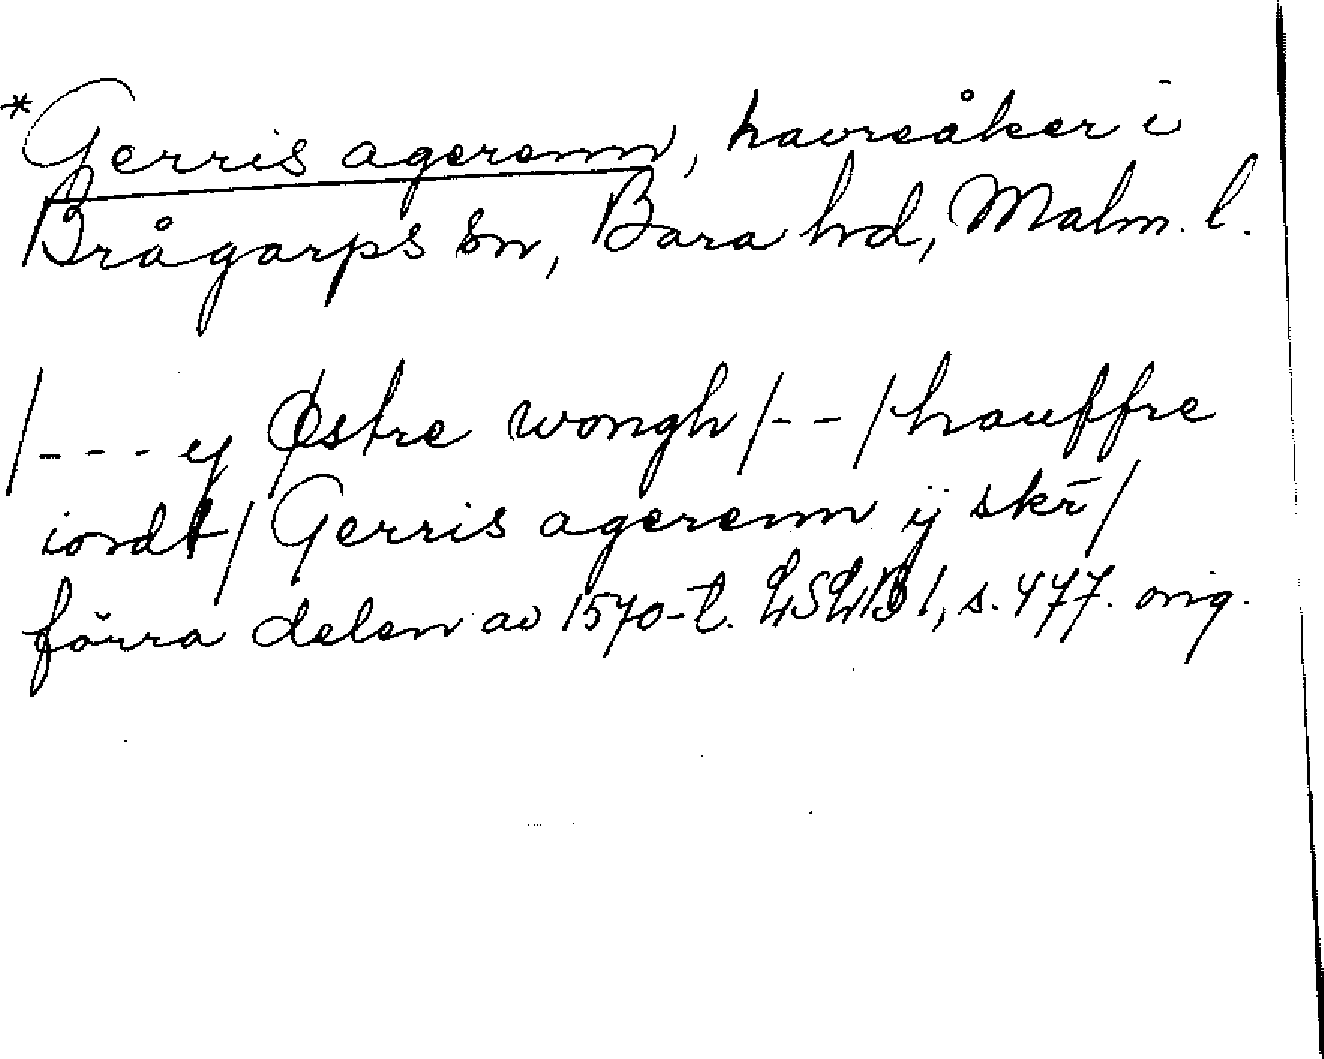 *Gerris agerenn, havreåker i
Brågarps sn, Bara hd, Malm. l.
/--- y Østre wongh/--/hauffre
iordt/ Gerris agerenn ij skr̄/
förra delen av 1570-t. LSLB 1, s. 477. orig.